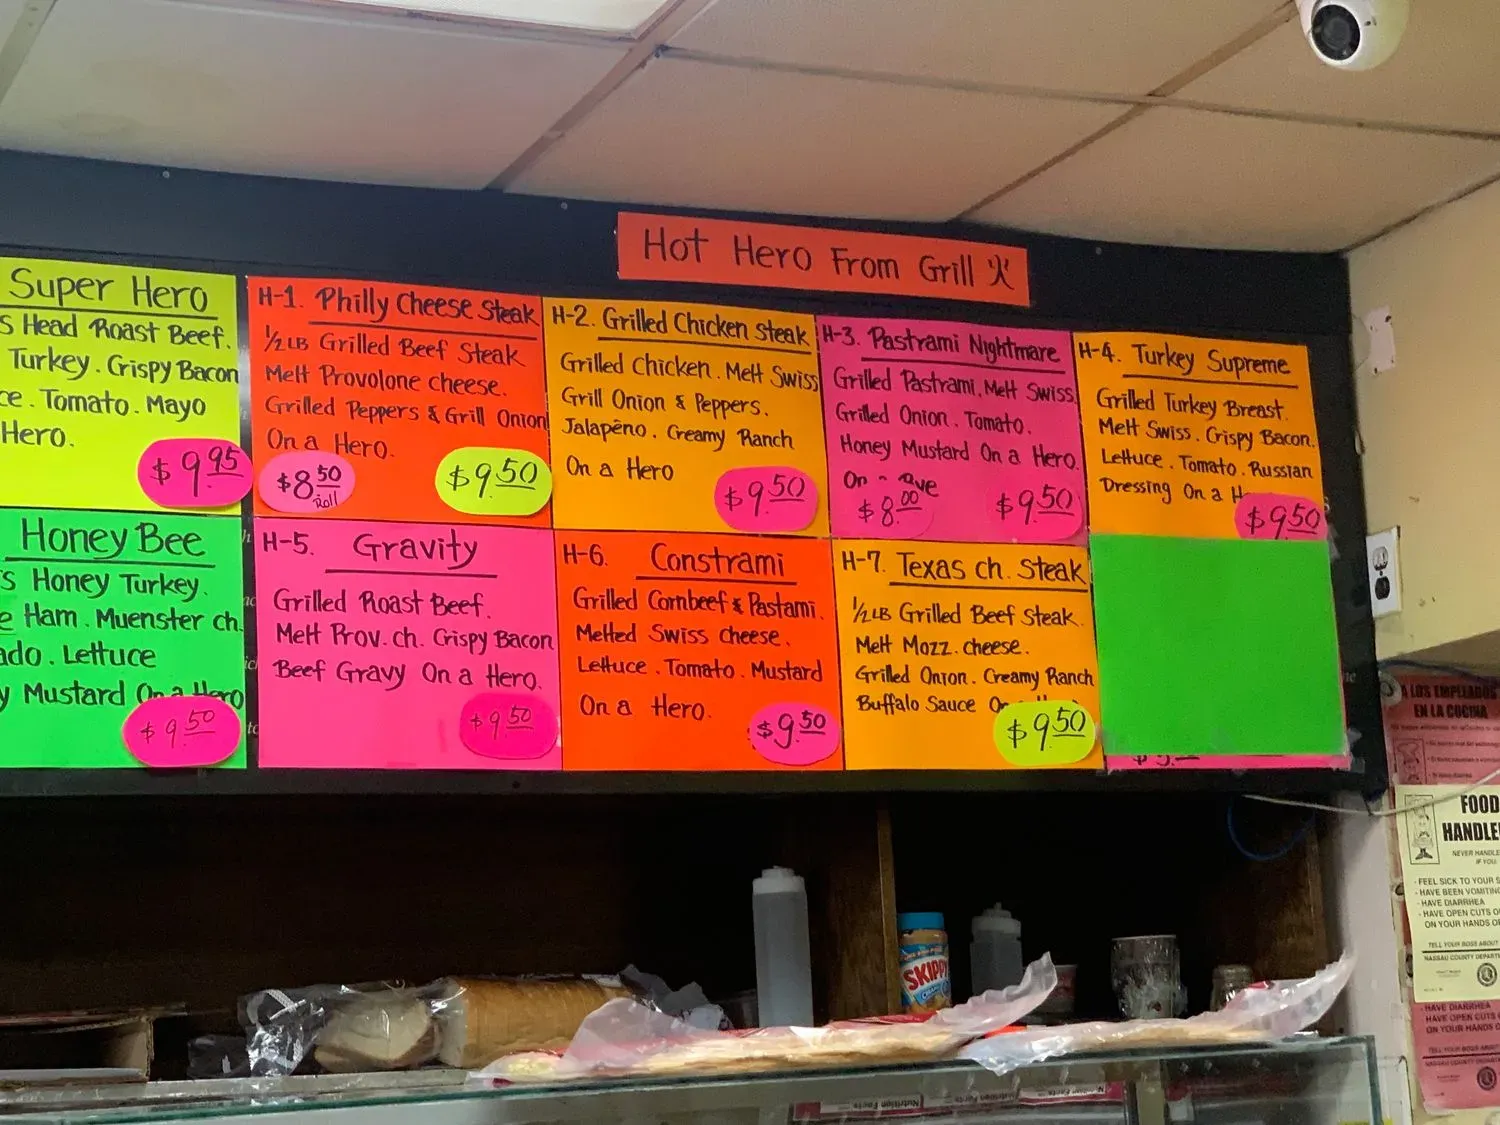 Hot Hero From Grill 火
Super Hero
s Head Roast Beef.
Turkey. Crispy Bacon
ce. Tomato. Mayo
Hero.
$9.95
H-1. Philly Cheese Steak
1/2 LB Grilled Beef Steak
Melt Provolone cheese.
Grilled Peppers & Grill Onion
On a Hero.
$8.50
Roll
$9.50
H-2. Grilled Chicken Steak
Grilled Chicken. Melt Swiss
Grill Onion & Peppers.
Jalapeño. Creamy Ranch
On a Hero
$9.50
H-3. Pastrami Nightmare
Grilled Pastrami. Melt Swiss.
Grilled Onion. Tomato.
Honey Mustard On a Hero.
On
$8.00
$9.50
H-4. Turkey Supreme
Grilled Turkey Breast.
Melt Swiss. Crispy Bacon.
Lettuce. Tomato. Russian
Dressing On a H
$9.50
Honey Bee
s Honey Turkey.
e Ham. Muenster ch.
ado. Lettuce
y Mustard On a Hero
$9.50
H-5. Gravity
Grilled Roast Beef.
Melt Prov. ch. Crispy Bacon
Beef Gravy On a Hero.
$9.50
H-6. Constrami
Grilled Cornbeef & Pastami.
Melted Swiss cheese.
Lettuce. Tomato. Mustard
On a Hero.
$9.50
H-7. Texas ch. Steak
1/2 LB Grilled Beef Steak.
Melt Mozz. cheese.
Grilled Onion. Creamy Ranch
Buffalo Sauce
$9.50
SKIPPY
A LOS EMPLEADOS
EN LA COCINA
FOOD
HANDLE
NEVER HANDLE
IF YOU:
- FEEL SICK TO YOUR S
- HAVE BEEN VOMITING
- HAVE DIARRHEA
- HAVE OPEN CUTS O
ON YOUR HANDS O
TELL YOUR BOSS ABOUT
NASSAU COUNTY DEPARTM
- HAVE DIARRHEA
- HAVE OPEN CUTS
ON YOUR HANDS O
TELL YOUR BOSS ABOUT
NASSAU COUNTY DEPART
Nutrition Facts
Nutrition Facts